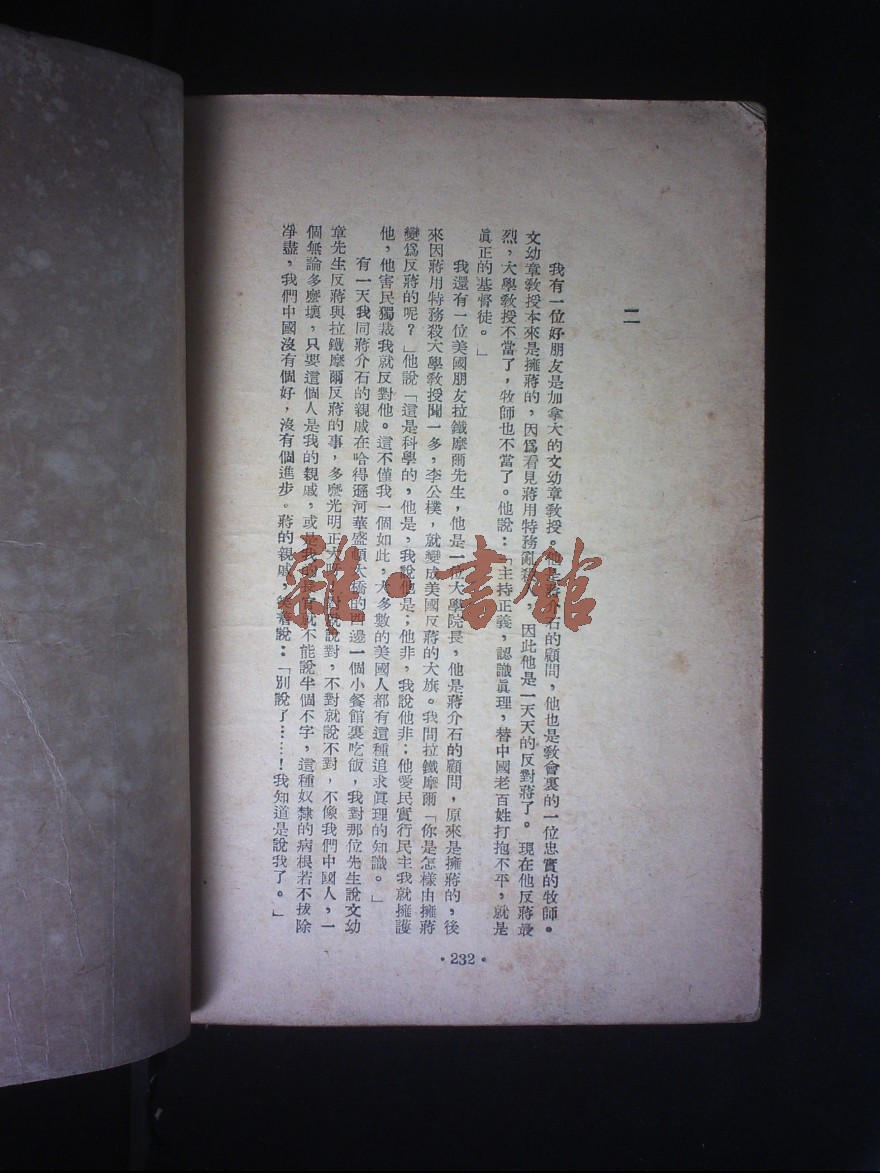 二
我有一位好朋友是加拿大的文幼章教授。他是蔣介石的顧問，他也是敎會裏的一位忠實的牧師。
文幼章敎授本來是擁蔣的，因爲看見蔣用特務亂殺，因此他是一天天的反對蔣了。現在他反蔣最
烈，大學敎授不當了，牧師也不當了。他說：「主持正義，認識眞理，替中國老百姓打抱不平，就是
眞正的基督徒。」
我還有一位美國朋友拉鐵摩爾先生，他是一位大學院長，他是蔣介石的顧問，原來是擁蔣的，後
來因蔣用特務殺大學敎授聞一多，李公樸，就變成美國反蔣的大旗。我問拉鐵摩爾「你是怎樣由擁蔣
變爲反蔣的呢？」他說「這是科學的，他是，我說他是；他非，我說他非；他愛民實行民主我就擁護
他，他害民獨裁我就反對他。這不僅我一個如此，大多數的美國人都有這種追求眞理的知識。」
有一天我同蔣介石的親戚在哈得遜河華盛頓大橋的四邊一個小餐館裏吃飯，我對那位先生說文幼
章先生反蔣與拉鐵摩爾反蔣的事，多麼光明正大對就說對，不對就說不對，不像我們中國人，一
個無論多麼壞，只要這個人是我的親戚，或是我的就不能說半個不字，這種奴隸的病根若不拔除
凈盡，我們中國沒有個好，沒有個進步。蔣的親戚，笑着說：「別說了……！我知道是說我了。」
·232·
雜·書館